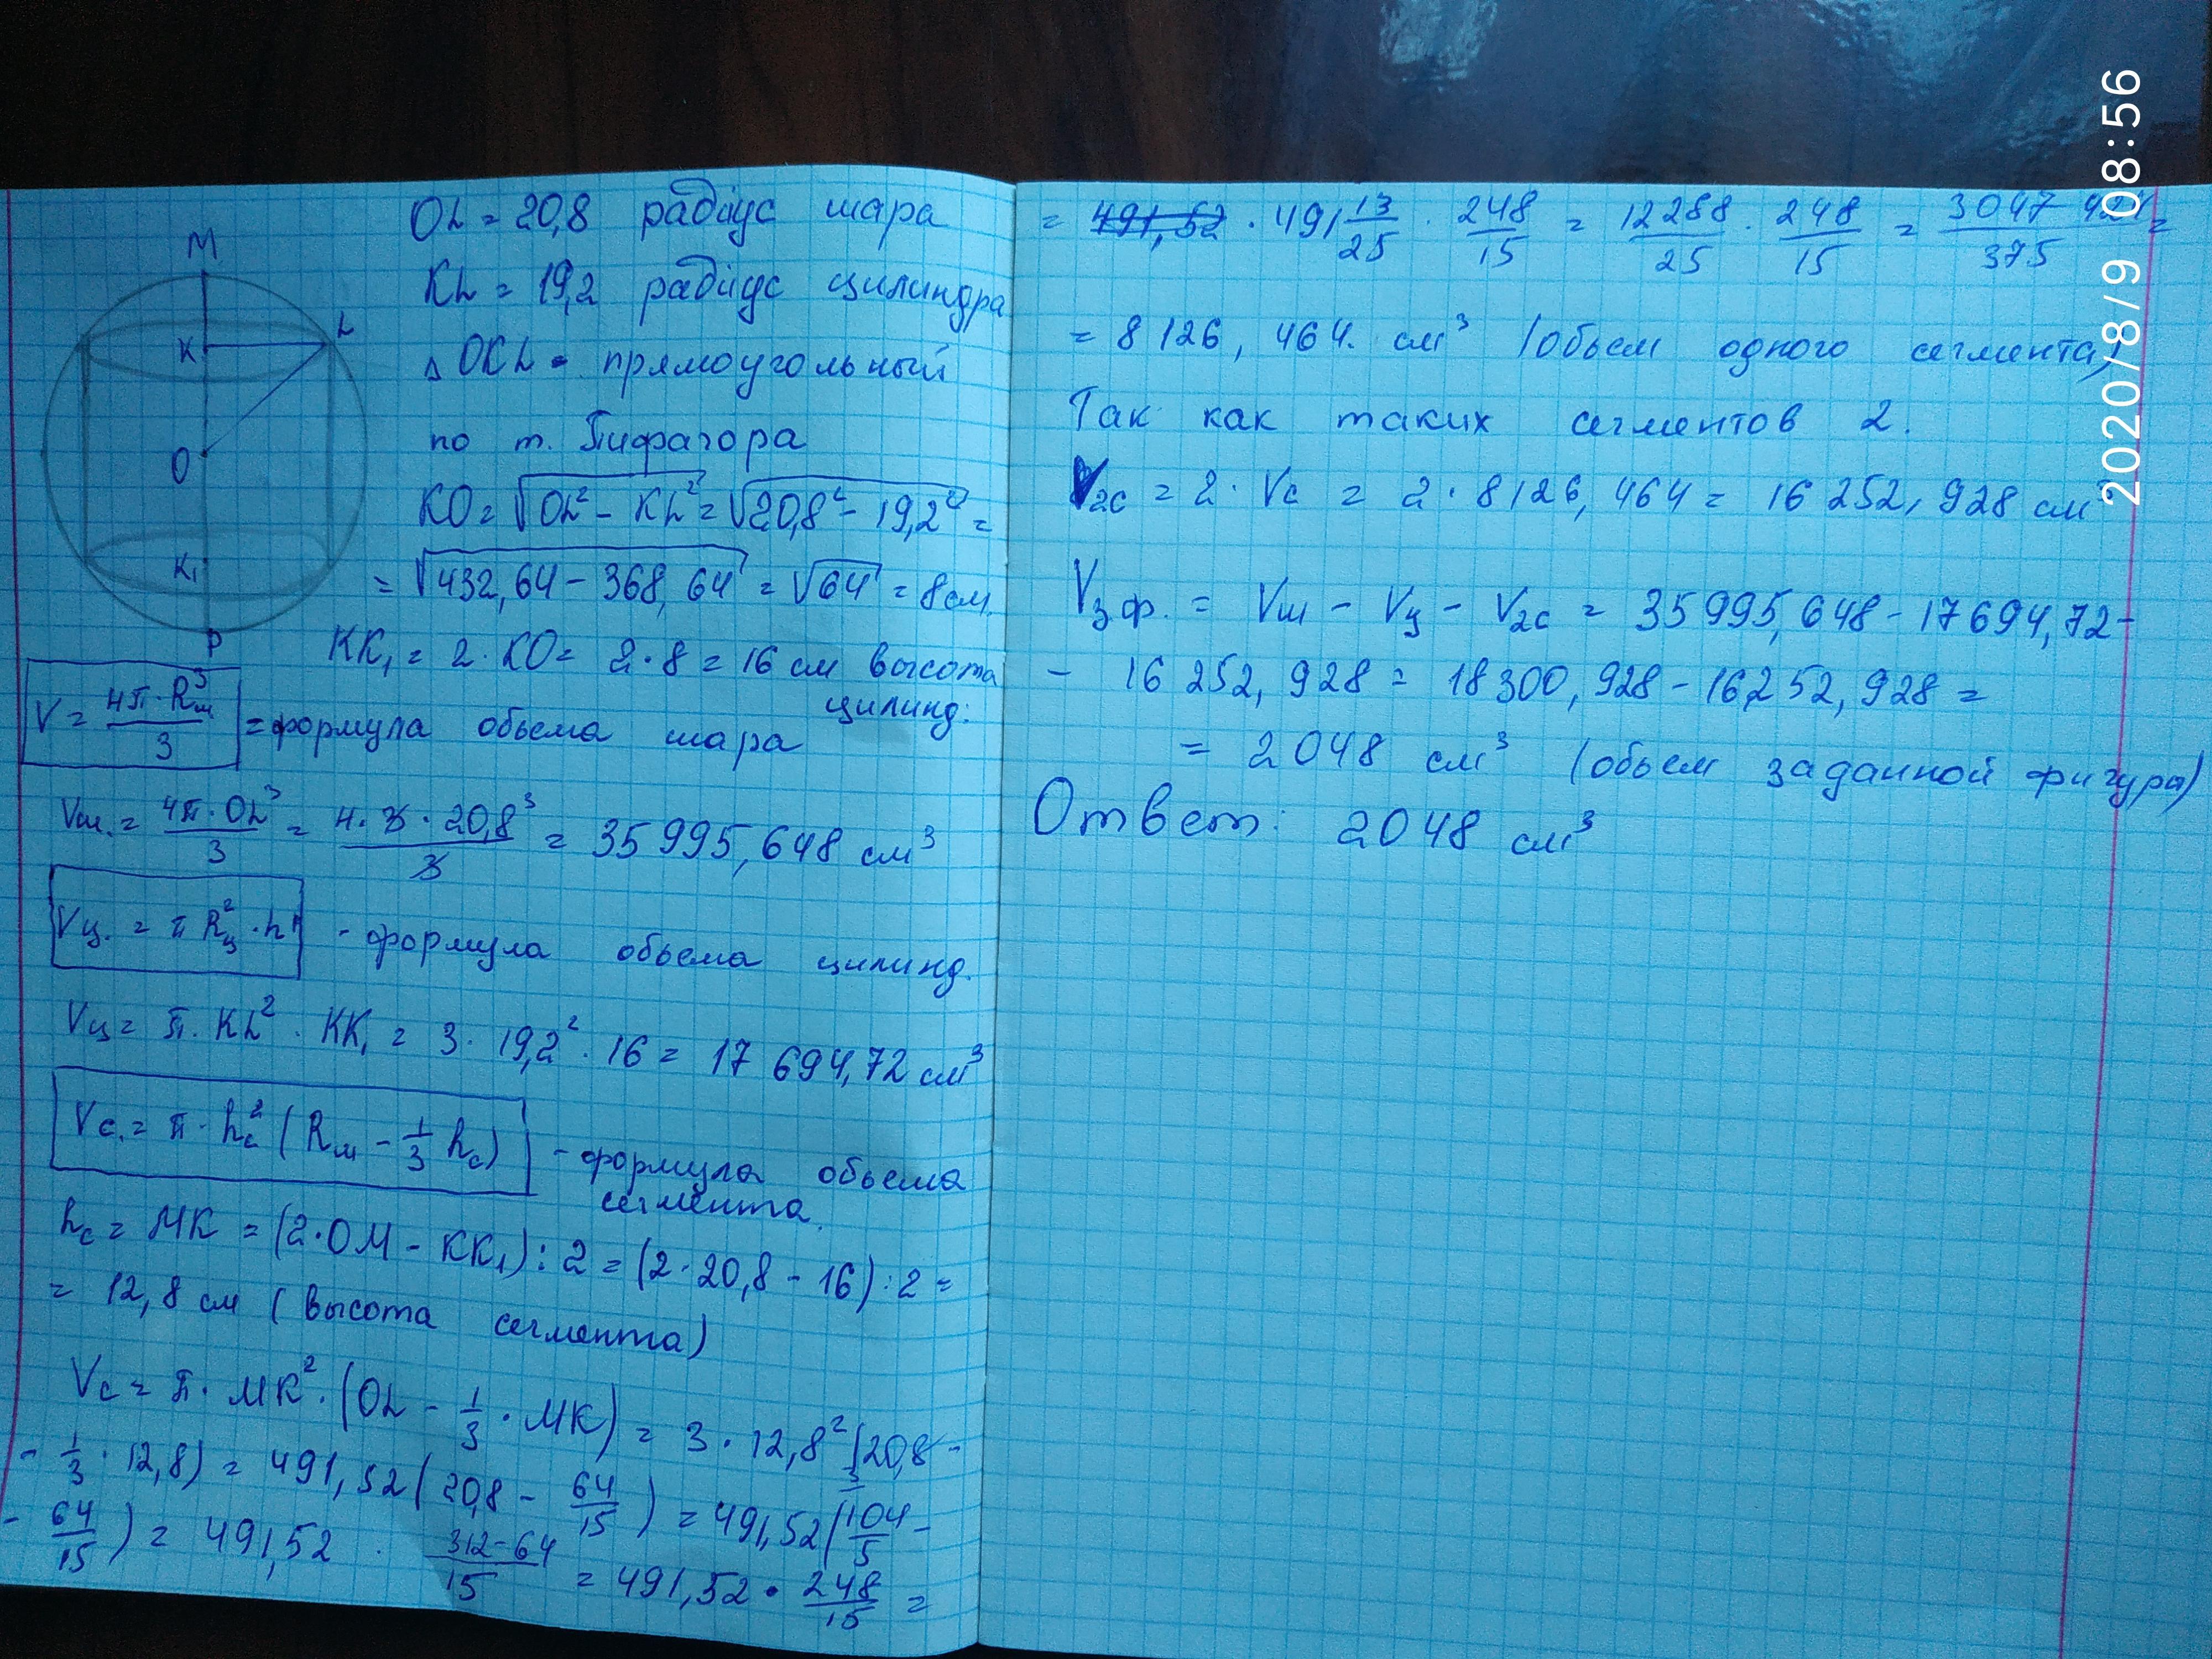 M
K
L
O
K₁
P
OL = 20,8 радіус шара
KL = 19,2 радіус цилиндра
△ OKL - прямоугольный
по т. Пифагора
KO = √OL² - KL² = √20,8² - 19,2² =
= √432,64 - 368,64 = √64 = 8 см.
KK₁ = 2 · KO = 2 · 8 = 16 см высота
цилинд.
V = 4π · Rш³ / 3 = формула обьема шара
Vш. = 4π · OL³ / 3 = 4 · 3 · 20,8³ / 3 = 35 995,648 см³
Vц. = π Rц² · h - формула обьема цилинд.
Vц = π · KL² · KK₁ = 3 · 19,2² · 16 = 17 694,72 см³
Vс. = π · hс² (Rш - 1/3 hс) - формула обьема
сегмента.
hс = MK = (2 · OM - KK₁) : 2 = (2 · 20,8 - 16) : 2 =
= 12,8 см (высота сегмента)
Vс = π · MK² · (OL - 1/3 · MK) = 3 · 12,8² (20,8 -
- 1/3 · 12,8) = 491,52 (20,8 - 64/15) = 491,52 (104/5 -
3
- 64/15) = 491,52 · 312-64/15 = 491,52 · 248/15 =
= 491,52 · 491 13/25 · 248/15 = 12288/25 · 248/15 = 3047 424/375 =
= 8 126, 464. см³ (обьем одного сегмента)
Так как таких сегментов 2.
V2с = 2 · Vс = 2 · 8126, 464 = 16 252, 928 см³
Vз.ф. = Vш - Vц - V2с = 35 995,648 - 17 694,72 -
- 16 252, 928 = 18 300, 928 - 16 252, 928 =
= 2 048 см³ (обьем заданной фигура)
Ответ: 2048 см³
2020/8/9 08:56